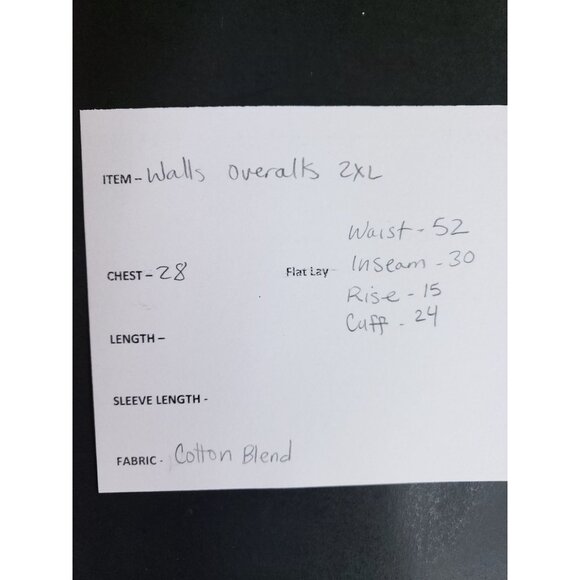 ITEM – Walls Overalls 2XL
Waist - 52
CHEST – 28 Flat Lay Inseam - 30
Rise - 15
Cuff - 24
LENGTH –
SLEEVE LENGTH -
FABRIC - Cotton Blend